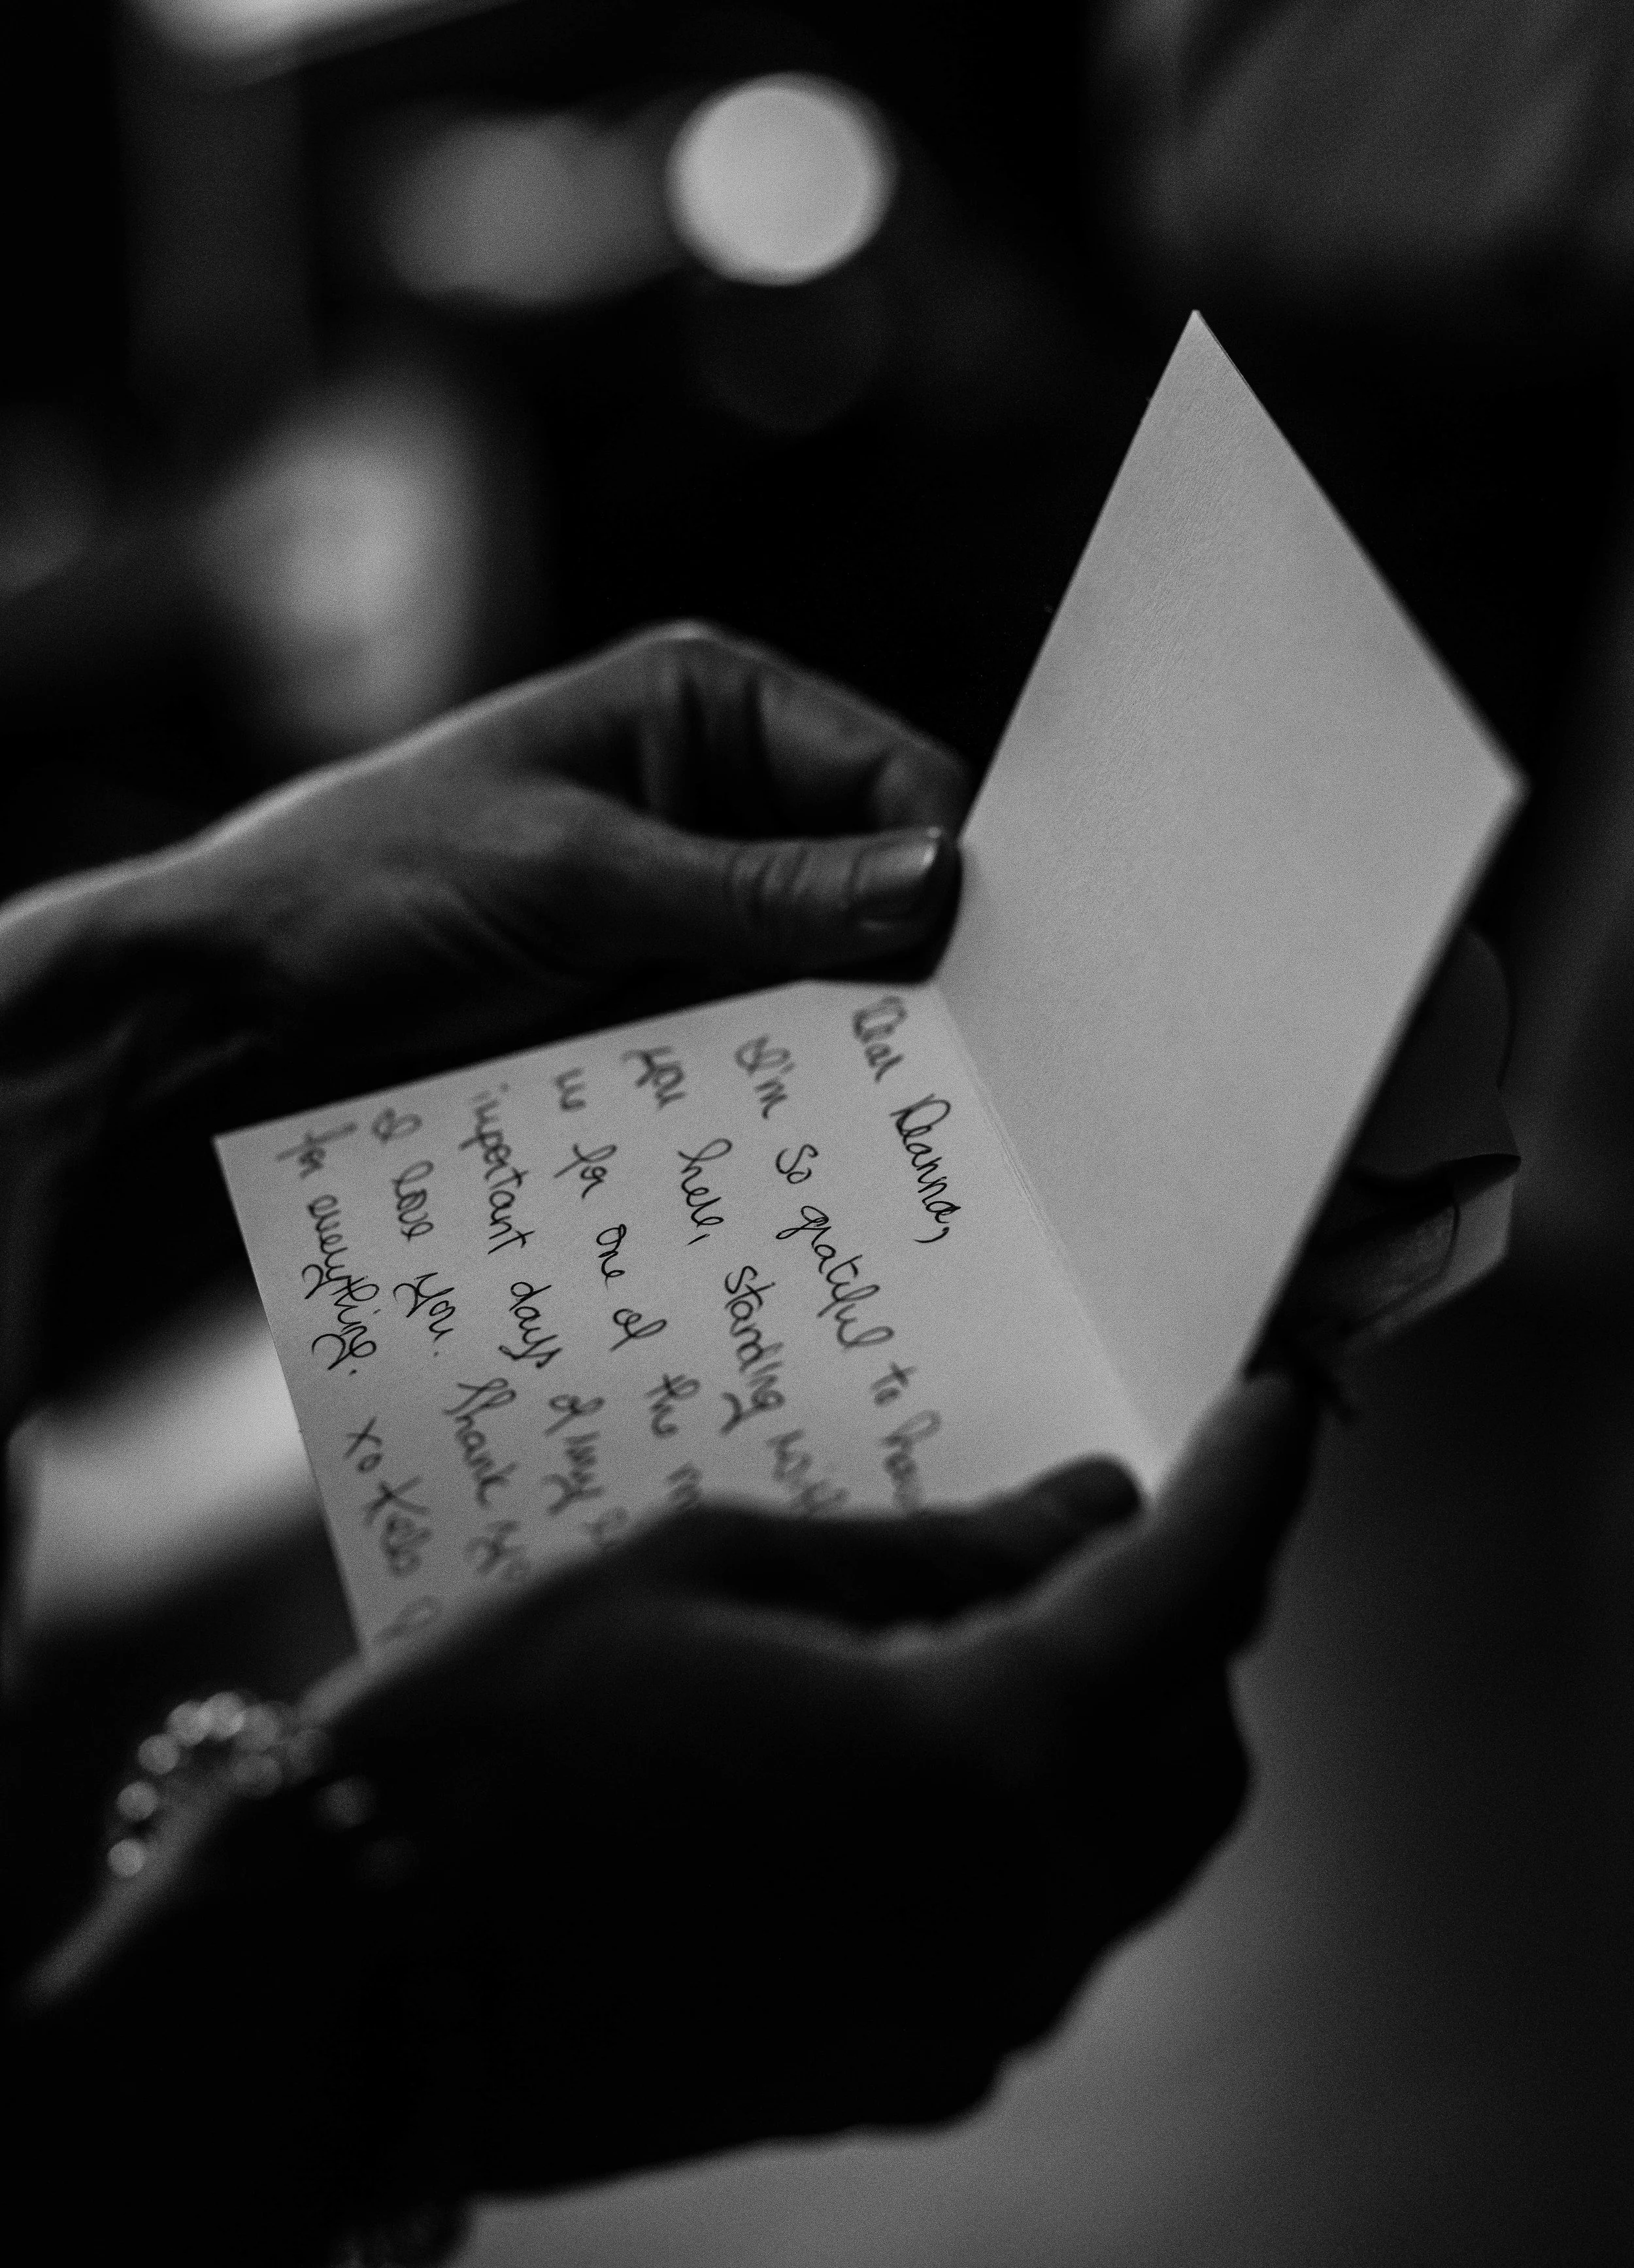 Dear Deanna,
I'm so grateful to have
you here, standing with
me for one of the
important days of my
I love you. Thank
for everything. xo